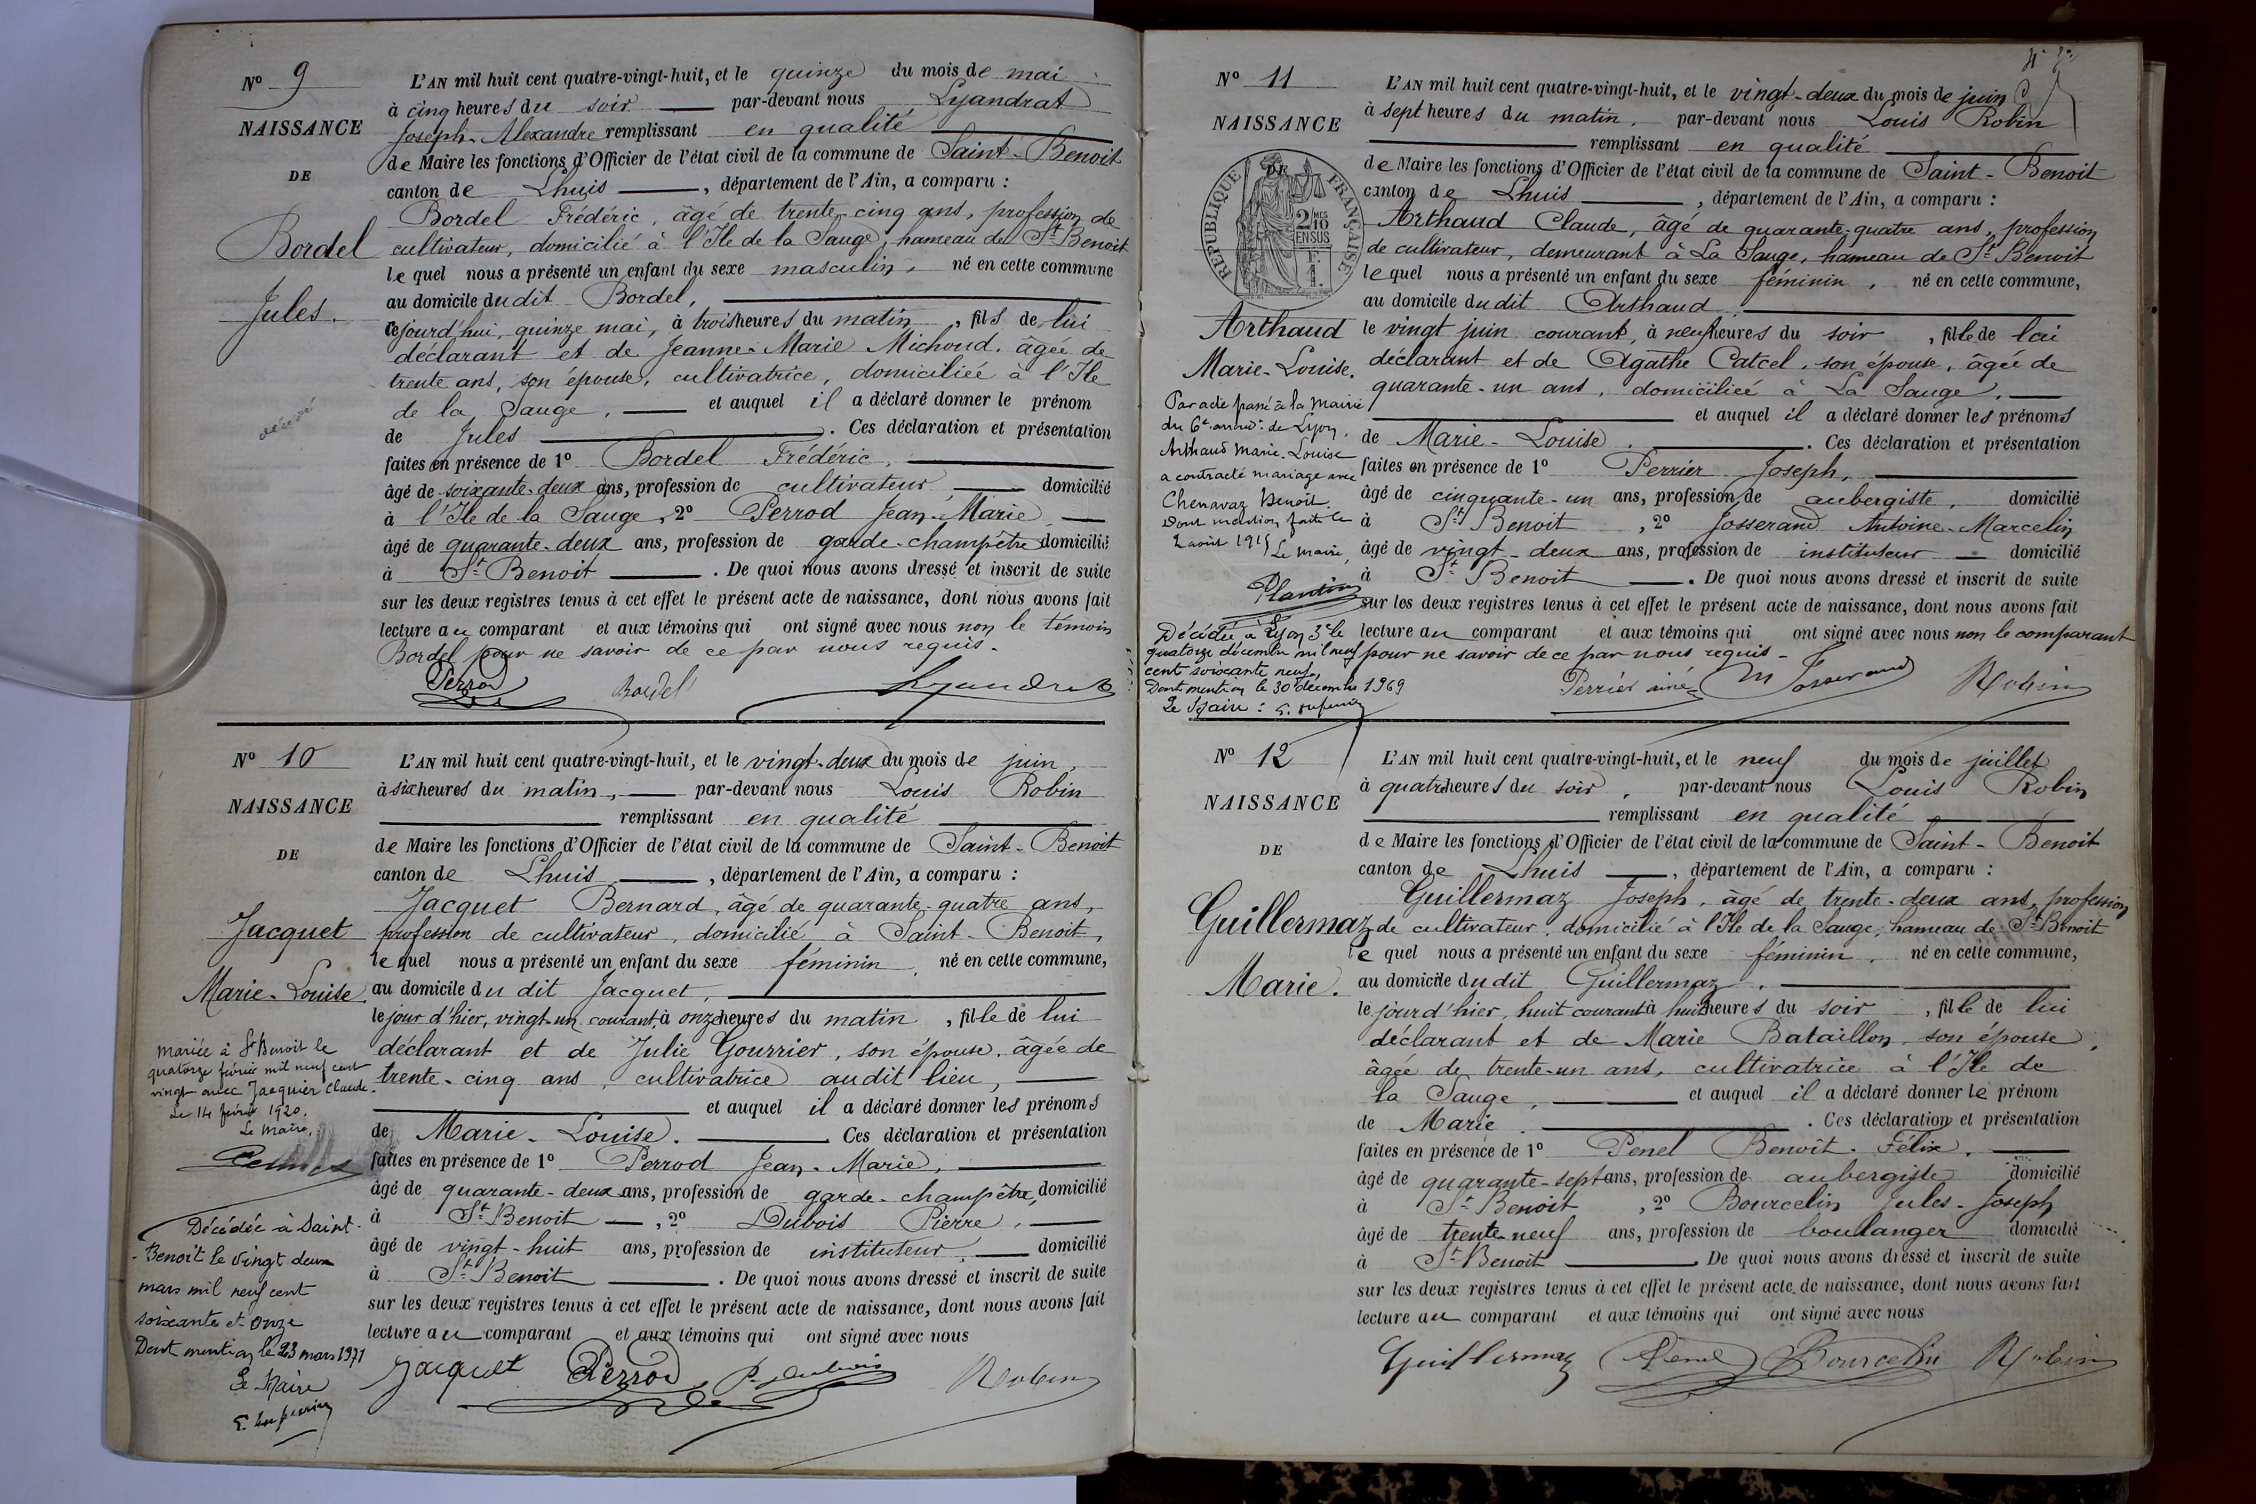 Nº 9
NAISSANCE
DE
Bordel
Jules.
décédé
L'AN mil huit cent quatre-vingt-huit, et le quinze du mois de mai
à cinq heures du soir par-devant nous Lyandrat
Joseph-Alexandre remplissant en qualité
de Maire les fonctions d'Officier de l'état civil de la commune de Saint-Benoit
canton de Lhuis, département de l'Ain, a comparu :
Bordel Frédéric, âgé de trente-cinq ans, profession de
cultivateur, domicilié à l'Ile de la Sauge, hameau de St Benoit
le quel nous a présenté un enfant du sexe masculin, né en cette commune
au domicile dudit Bordel,
cejourd'hui, quinze mai, à trois heures du matin, fils de lui
déclarant et de Jeanne-Marie Michoud, âgée de
trente ans, son épouse, cultivatrice, domiciliée à l'Ile
de la Sauge, et auquel il a déclaré donner le prénom
de Jules. Ces déclaration et présentation
faites en présence de 1º Bordel Frédéric,
âgé de soixante-deux ans, profession de cultivateur domicilié
à l'Ile de la Sauge, 2º Perrod Jean-Marie,
âgé de quarante-deux ans, profession de garde-champêtre domicilié
à St Benoit. De quoi nous avons dressé et inscrit de suite
sur les deux registres tenus à cet effet le présent acte de naissance, dont nous avons fait
lecture au comparant et aux témoins qui ont signé avec nous non le témoin
Bordel pour ne savoir de ce par nous requis.
Perrod Bordel Lyandrat
Nº 10
NAISSANCE
DE
Jacquet
Marie-Louise
Mariée à St Benoit le
quatorze février mil neuf cent
vingt avec Jacquier Claude.
Le 14 février 1920.
Le Maire,
Décédée à Saint-
-Benoit le vingt deux
mars mil neuf cent
soixante et onze
Dont mention le 23 mars 1971
Le Maire
L'AN mil huit cent quatre-vingt-huit, et le vingt-deux du mois de juin,
à six heures du matin, par-devant nous Louis Robin
remplissant en qualité
de Maire les fonctions d'Officier de l'état civil de la commune de Saint-Benoit
canton de Lhuis, département de l'Ain, a comparu :
Jacquet Bernard, âgé de quarante-quatre ans,
profession de cultivateur, domicilié à Saint-Benoit,
le quel nous a présenté un enfant du sexe féminin, né en cette commune,
au domicile du dit Jacquet,
le jour d'hier, vingt-un courant, à onze heures du matin, fille de lui
déclarant et de Julie Gourrier, son épouse, âgée de
trente-cinq ans, cultivatrice audit lieu,
et auquel il a déclaré donner les prénoms
de Marie-Louise. Ces déclaration et présentation
faites en présence de 1º Perrod Jean-Marie,
âgé de quarante-deux ans, profession de garde-champêtre, domicilié
à St Benoit, 2º Dubois Pierre,
âgé de vingt-huit ans, profession de instituteur, domicilié
à St Benoit. De quoi nous avons dressé et inscrit de suite
sur les deux registres tenus à cet effet le présent acte de naissance, dont nous avons fait
lecture au comparant et aux témoins qui ont signé avec nous
Jacquet Perrod P. Dubois Robin
Nº 11
NAISSANCE
DE
RÉPUBLIQUE FRANÇAISE
2/10 MES
EN SUS
F.
1.
Arthaud
Marie-Louise.
Par acte passé à la Mairie
du 6e arrondt de Lyon,
Arthaud Marie-Louise
a contracté mariage avec
Chenavaz Benoit.
Dont mention faite le
2 août 1915
Le maire,
Plantin
Décédée à Lyon 3e le
quatorze décembre mil neuf
cent soixante neuf.
Dont mention le 30 décembre 1969
Le Maire :
L'AN mil huit cent quatre-vingt-huit, et le vingt-deux du mois de juin
à sept heures du matin, par-devant nous Louis Robin
remplissant en qualité
de Maire les fonctions d'Officier de l'état civil de la commune de Saint-Benoit
canton de Lhuis, département de l'Ain, a comparu :
Arthaud Claude, âgé de quarante-quatre ans, profession
de cultivateur, demeurant à La Sauge, hameau de St Benoit
le quel nous a présenté un enfant du sexe féminin, né en cette commune,
au domicile dudit Arthaud,
le vingt juin courant, à neuf heures du soir, fille de lui
déclarant et de Agathe Catcel, son épouse, âgée de
quarante-un ans, domiciliée à La Sauge,
et auquel il a déclaré donner les prénoms
de Marie-Louise. Ces déclaration et présentation
faites en présence de 1º Perrier Joseph,
âgé de cinquante-un ans, profession de aubergiste, domicilié
à St Benoit, 2º Josserand Antoine-Marcelin
âgé de vingt-deux ans, profession de instituteur domicilié
à St Benoit. De quoi nous avons dressé et inscrit de suite
sur les deux registres tenus à cet effet le présent acte de naissance, dont nous avons fait
lecture au comparant et aux témoins qui ont signé avec nous non le comparant
pour ne savoir de ce par nous requis.
Perrier ainé M Josserand Robin
Nº 12
NAISSANCE
DE
Guillermaz
Marie.
L'AN mil huit cent quatre-vingt-huit, et le neuf du mois de juillet
à quatre heures du soir, par-devant nous Louis Robin
remplissant en qualité
de Maire les fonctions d'Officier de l'état civil de la commune de Saint-Benoit
canton de Lhuis, département de l'Ain, a comparu :
Guillermaz Joseph, âgé de trente-deux ans, profession
de cultivateur, domicilié à l'Ile de la Sauge, hameau de St Benoit
le quel nous a présenté un enfant du sexe féminin, né en cette commune,
au domicile dudit Guillermaz,
le jour d'hier, huit courant à huit heures du soir, fille de lui
déclarant et de Marie Bataillon, son épouse,
âgée de trente-un ans, cultivatrice à l'Ile de
la Sauge, et auquel il a déclaré donner le prénom
de Marie. Ces déclaration et présentation
faites en présence de 1º Penel Benoît-Félix,
âgé de quarante-sept ans, profession de aubergiste domicilié
à St Benoit, 2º Bourcelin Jules-Joseph
âgé de trente-neuf ans, profession de boulanger domicilié
à St Benoit. De quoi nous avons dressé et inscrit de suite
sur les deux registres tenus à cet effet le présent acte de naissance, dont nous avons fait
lecture au comparant et aux témoins qui ont signé avec nous
Guillermaz Penel Bourcelin Robin